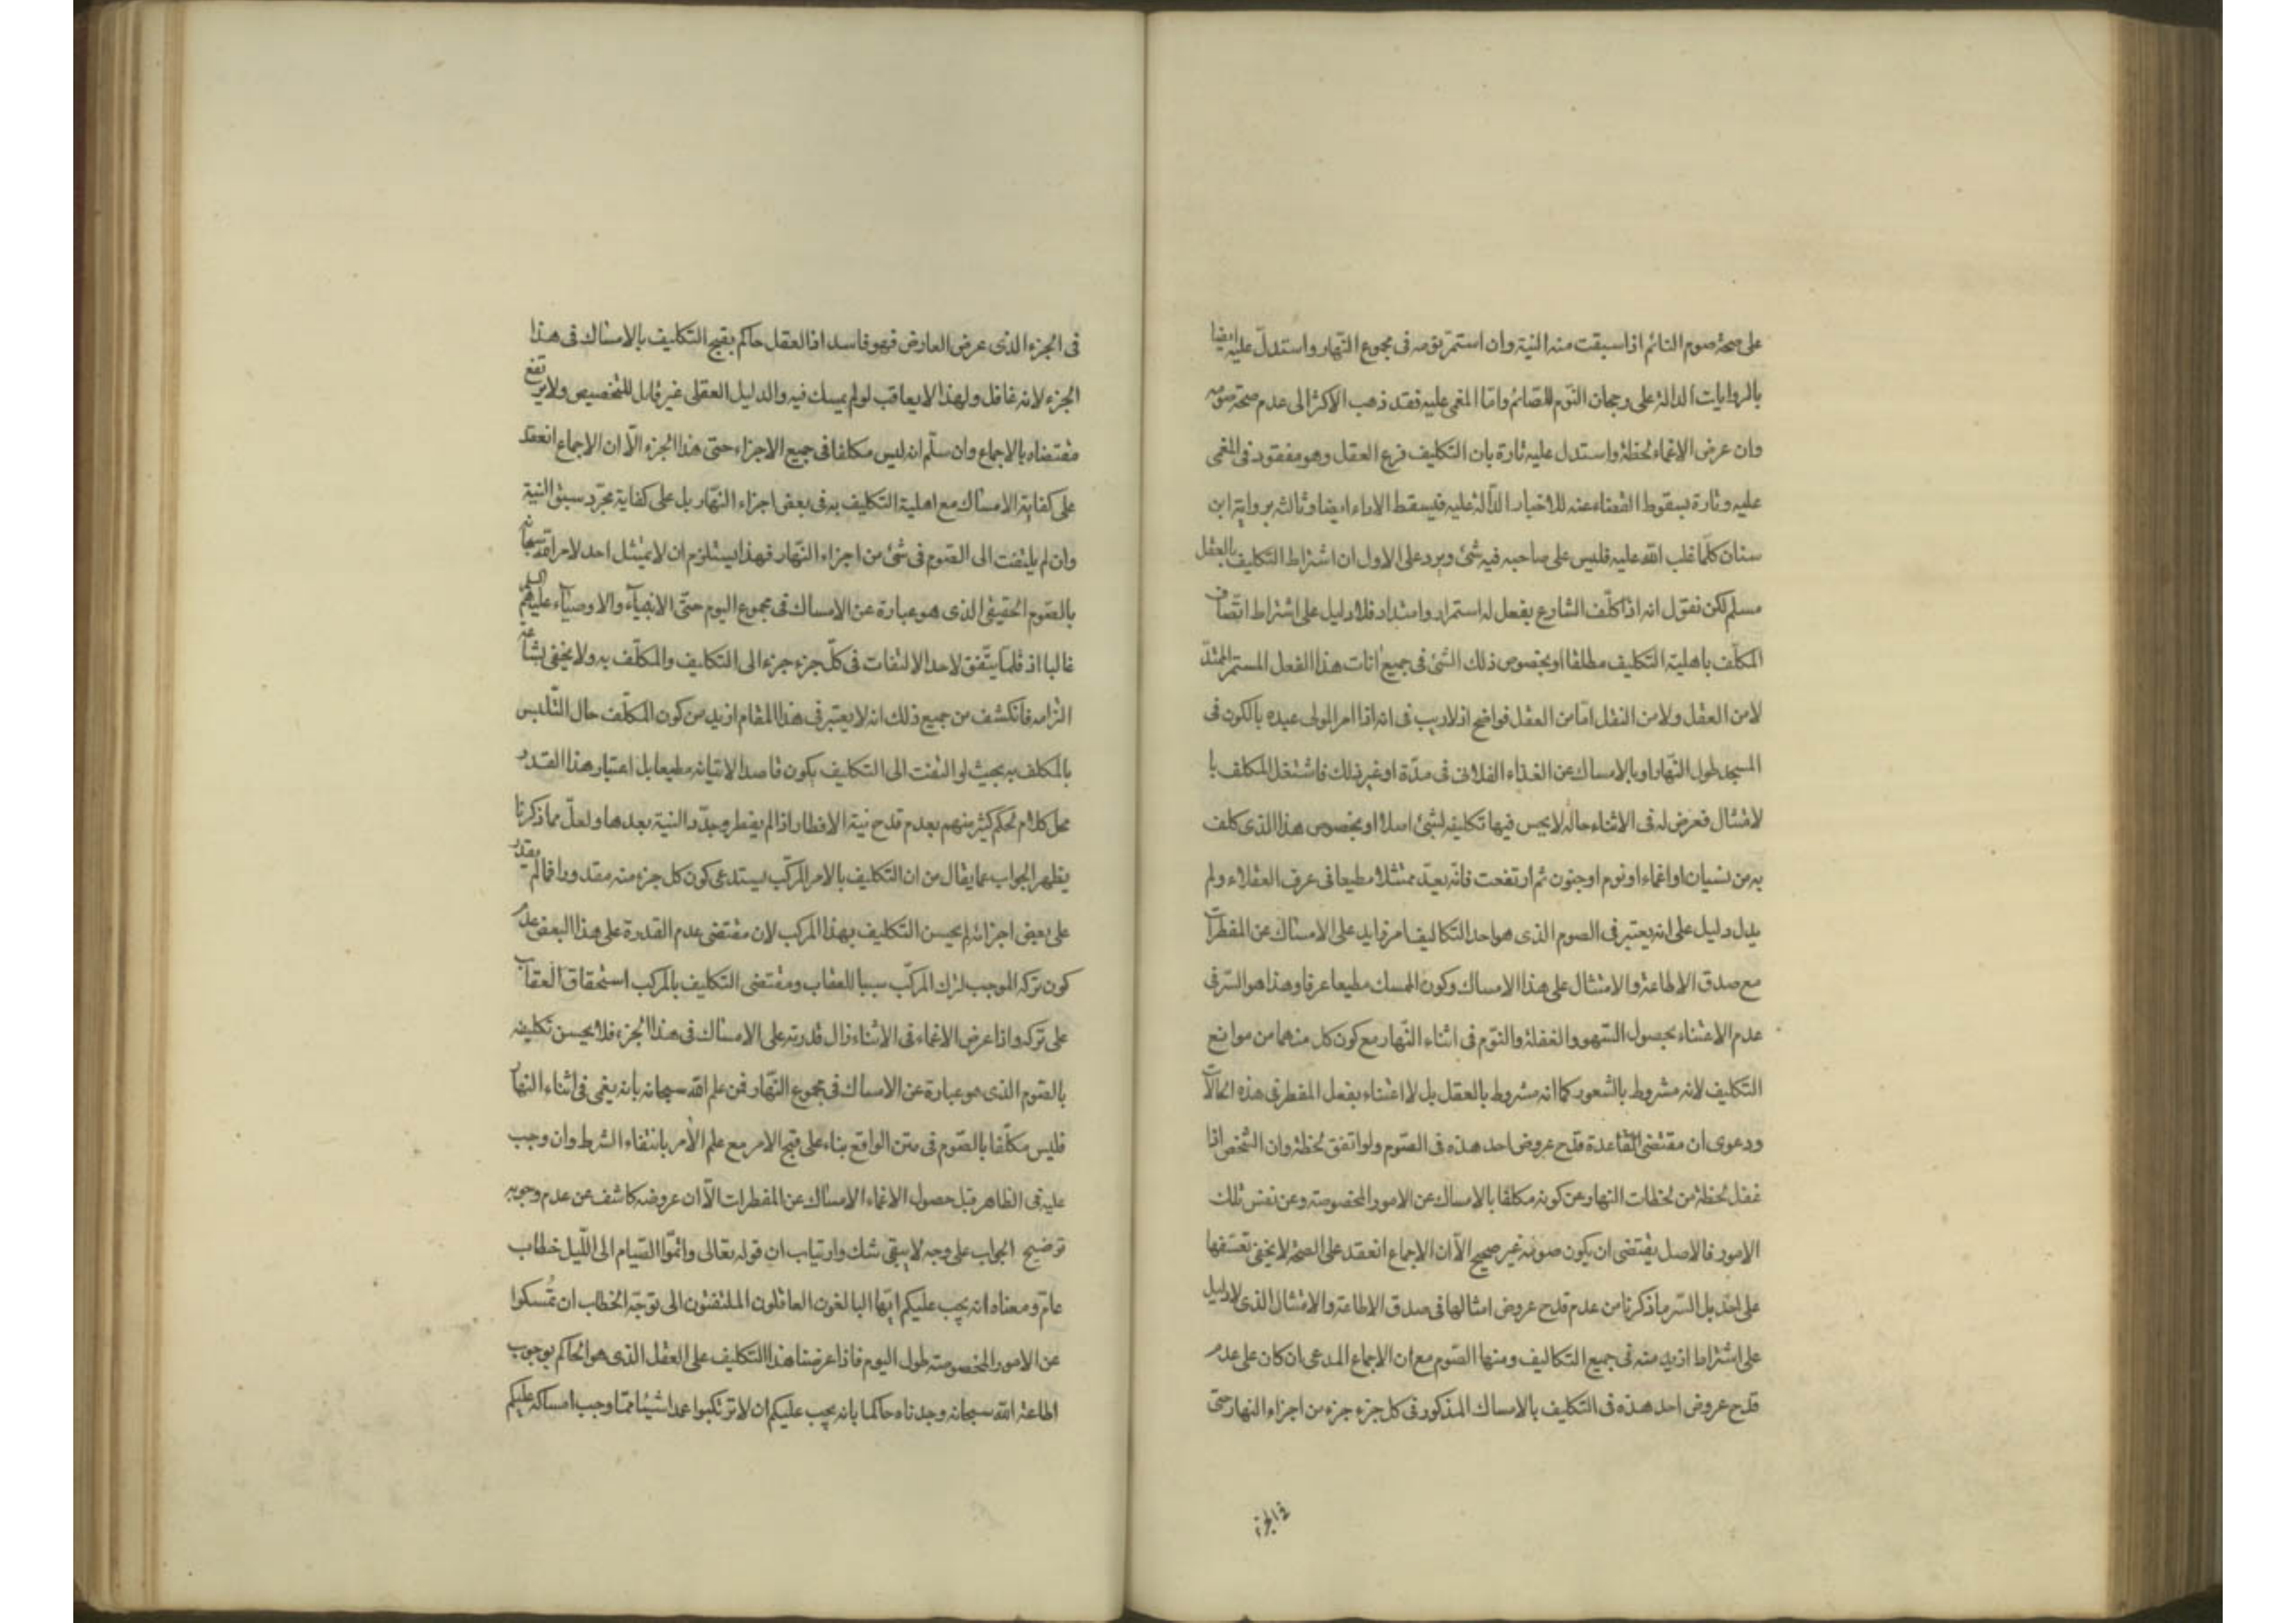 على صحة صوم النائم اذا سبقت منه النية وان استمر نومه فى مجموع النهار واستدل عليه ايضا
بالروايات الدالة على رجحان النوم للصائم وامّا المغمى عليه فقد ذهب الاكثر الى عدم صحة صومه
وان عرض الاغماء لحظة واستدل عليه تارة بان التكليف فرع العقل وهو مفقود فى المغمى
عليه وتارة بسقوط القضاء عنه للاخبار الدّالة عليه فيسقط الاداء ايضا وثالثه برواية ابن
سنان كلّما غلب الله عليه فليس على صاحبه فيه شئ ويرد على الاول ان اشتراط التكليف بالعقل
مسلم لكن نقول انه اذا كلّف الشارع بفعل له استمرار وامتداد فلا دليل على اشتراط اتّصاف
المكلّف باهلية التكليف مطلقا او بخصوص ذلك الشئ فى جميع انات هذا الفعل المستمر الممتدّ
لا من العقل ولا من النقل امّا من العقل فواضح اذ لا ريب فى انه اذا امر المولى عبده بالكون فى
المسجد طول النّهار او بالامساك عن الغذاء الفلانى فى مدّة او غير ذلك فاشتغل المكلف با
لامتثال فعرض له فى الاثناء حالة لا يحسن فيها تكليفه لشئ اصلا او بخصوص هذا الذى كلف
به من نسيان او اغماء او نوم او جنون ثم ارتفعت فانّه يعدّ ممتثلا مطيعا فى عرف العقلاء ولم
يدل دليل على انه يعتبر فى الصوم الذى هو احد التكاليف امر زايد على الامساك عن المفطرات
مع صدق الاطاعة والامتثال على هذا الامساك وكون الممسك مطيعا عرفا وهذا هو السّر فى
عدم الاعتناء بحصول السّهو والغفلة والنّوم فى اثناء النّهار مع كون كل منهما من موانع
التّكليف لانه مشروط بالشعور كما انه مشروط بالعقل بل لا اعتناء بفعل المفطر فى هذه الحالات
ودعوى ان مقتضى القاعدة قدح عروض احد هذه فى الصّوم ولو اتفق لحظة وان الشخص اذا
غفل لحظة من لحظات النهار عن كونه مكلفا بالامساك عن الامور المخصوصة وعن نفس تلك
الامور فالاصل يقتضى ان يكون صومه غير صحيح الّا ان الاجماع انعقد على الصحة لا يخفى تعسّفها
على احد بل السّر ما ذكرنا من عدم قدح عروض امثالها فى صدق الاطاعة والامتثال الذى لا دليل
على اشتراط ازيد منه فى جميع التكاليف ومنها الصّوم مع ان الاجماع المدعى ان كان على عدم
قدح عروض احد هذه فى التكليف بالامساك المذكور فى كل جزء جزء من اجزاء النهار حتى
فى الجزء
فى الجزء الذى عرض العارض فهو فاسد اذ العقل حاكم بقبح التّكليف بالامساك فى هذا
الجزء لانه غافل ولهذا لا يعاقب لو لم يمسك فيه والدليل العقلى غير قابل للتخصيص ولا يرتفع
مقتضاه بالاجماع وان سلّم انه ليس مكلفا فى جميع الاجزاء حتى هذا الجزء الّا ان الاجماع انعقد
على كفاية الامساك مع اهلية التكليف به فى بعض اجزاء النّهار بل على كفاية مجرّد سبق النية
وان لم يلتفت الى الصّوم فى شئ من اجزاء النّهار فهذا يستلزم ان لا يمتثل احد لامر الله سبحانه
بالصّوم الحقيقى الذى هو عبارة عن الامساك فى مجموع اليوم حتّى الانبياء والاوصياء عليهم السلم
غالبا اذ قلّما يتّفق لاحد الالتفات فى كلّ جزء جزء الى التكاليف والمكلّف به ولا يخفى بشاعة
التزامه فانكشف من جميع ذلك انه لا يعتبر فى هذا المقام ازيد من كون المكلّف حال التّلبس
بالمكلف به بحيث لو التفت الى التكليف بكون قاصدا لاتيانه مطيعا بل اعتبار هذا القدر
محل كلام لحكم كثير منهم بعدم قدح نية الافطار اذا لم يفطر وجدّد النية بعدها ولعلّ مما ذكرنا
يظهر الجواب عما يقال من ان التكليف بالامر المركّب يستدعى كون كل جزء منه مقدورا فما لم يقدر
على بعض اجزائه لم يحسن التكليف بهذا المركب لان مقتضى عدم القدرة على هذا البعض عدم
كون تركه الموجب لترك المركّب سببا للعقاب ومقتضى التكليف بالمركب استحقاق العقاب
على تركه واذا عرض الاغماء فى الاثناء زال قدرته على الامساك فى هذا الجزء فلا يحسن تكليفه
بالصّوم الذى هو عبارة عن الامساك فى مجموع النّهار فمن علم الله سبحانه بانه يغمى فى اثناء النهار
فليس مكلّفا بالصّوم فى متن الواقع بناء على قبح الامر مع علم الآمر بانتفاء الشرط وان وجب
عليه فى الظاهر قبل حصول الاغماء الامساك عن المفطرات الّا ان عروضه كاشف عن عدم وجوبه
توضيح الجواب على وجه لا يبقى شك وارتياب ان قوله تعالى واتمّوا الصّيام الى اللّيل خطاب
عام ومعناه انه يجب عليكم ايّها البالغون العاقلون الملتفتون الى توجّه الخطاب ان تمسكوا
عن الامور المخصوصة طول اليوم فاذا عرضنا هذا التكليف على العقل الذى هو الحاكم بوجوب
اطاعة الله سبحانه وجدناه حاكما بانه يجب عليكم ان لا ترتكبوا عمدا شيئا ممّا وجب امساكه عليكم